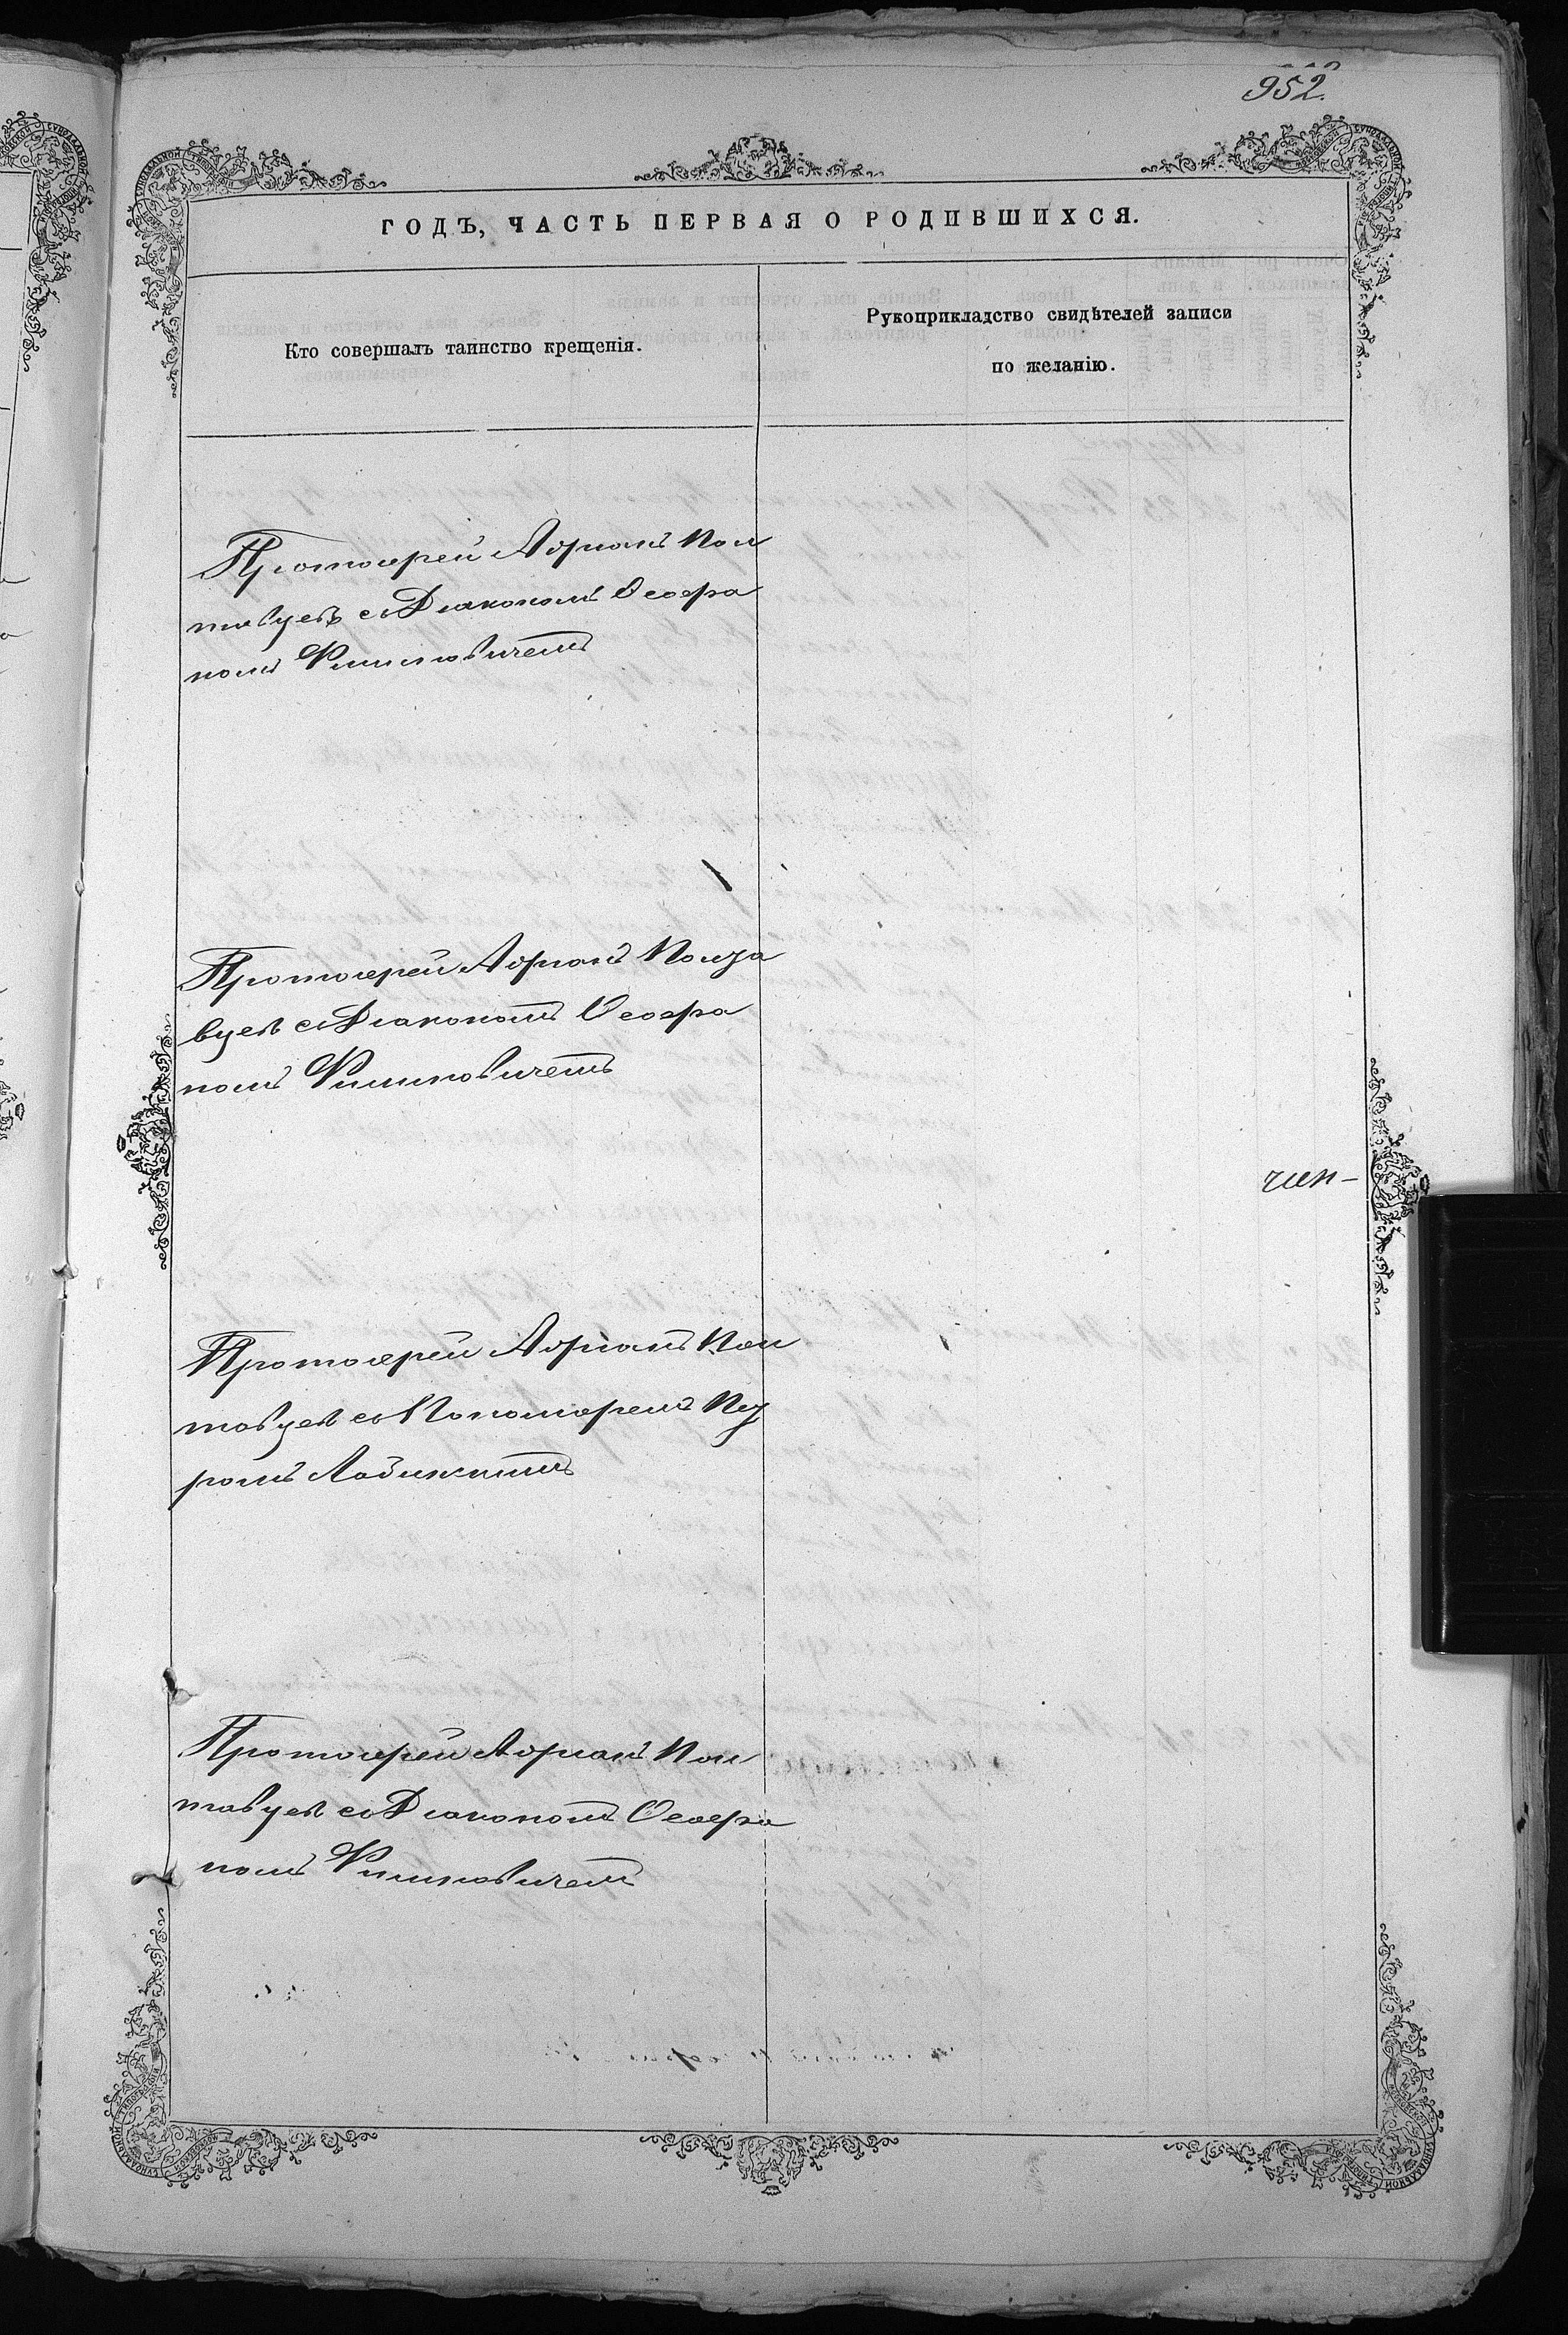 952.
ГОДЪ, ЧАСТЬ ПЕРВАЯ О РОДИВШИХСЯ.
Кто совершалъ таинство крещенія.
Рукоприкладство свидѣтелей записи
по желанію.
Протоіерей Адріанъ Пол
тавцевъ съ Діакономъ Ѳеофа
номъ
Протоіерей Адріанъ Полта
вцевъ съ Діакономъ Ѳеофа
номъ
чен-
Протоіерей Адріанъ Пол
тавцевъ съ Пономаремъ Пет
ромъ
Протоіерей Адріанъ Пол
тавцевъ съ Діакономъ Ѳеофа
номъ